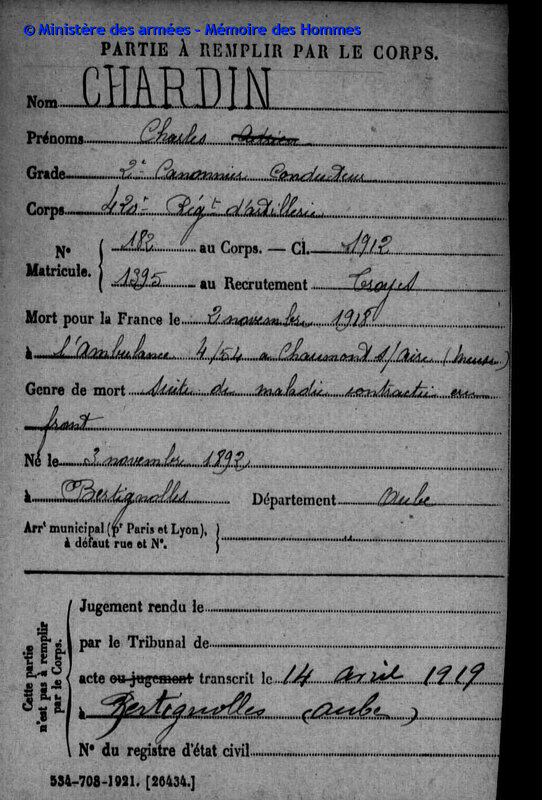 © Ministère des armées - Mémoire des Hommes
PARTIE À REMPLIR PAR LE CORPS.
Nom CHARDIN
Prénoms Charles Adrien
Grade 2e Canonnier Conducteur
Corps 420e Régt d'artillerie
N° Matricule. { 182 au Corps. — Cl. 1912
1395 au Recrutement Troyes
Mort pour la France le 2 novembre 1918
à l'Ambulance 4/54 a Chaumont s/ Aire (Meuse)
Genre de mort Suite de maladie contractée au
front
Né le 3 novembre 1892
à Bertignolles Département Aube
Arrt municipal (pr Paris et Lyon), à défaut rue et N°. } "
Cette partie n'est pas à remplir par le Corps. {
Jugement rendu le
par le Tribunal de
acte ou jugement transcrit le 14 avril 1919
à Bertignolles (Aube)
N° du registre d'état civil
534-708-1921. [26434.]